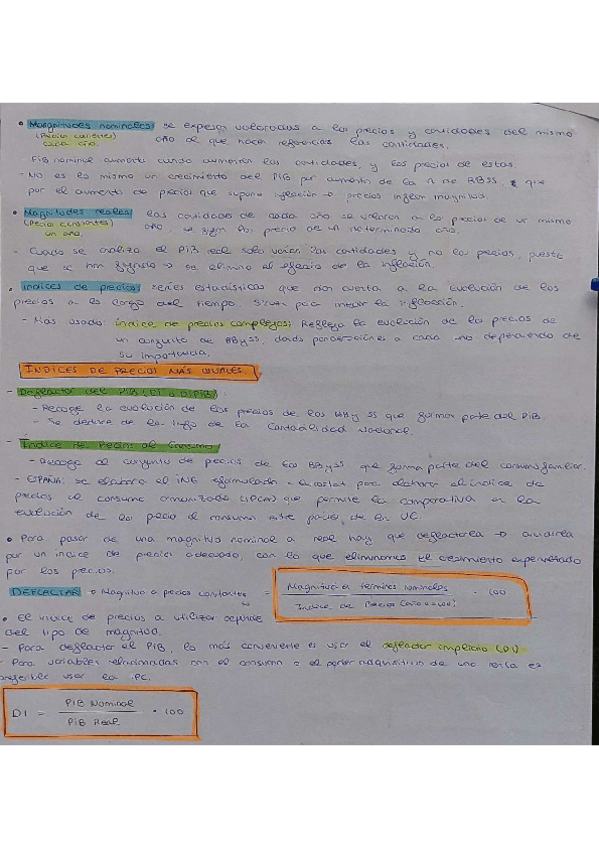 • Margnitudes nominales: se expresa valoradas a los precios y cantidades del mismo
(Precios corrientes) año al que hacen referencias las cantidades.
cada año.
PIB nominal aumenta cuando aumentan las cantidades, y los precios de estas.
- No es lo mismo un crecimiento del PIB por aumento de la de BBSS, que
por el aumento de precios que supone inflación → precios
• Magnitudes reales: las cantidades de cada año se valoran a los precios de un mismo
(Precio constantes) año, se fijan los precios de un determinado año.
un año.
- Cuando se analiza el PIB real solo varían las cantidades y no los precios, puesto
que se han fijado → se elimina el efecto de la inflación.
• Índices de precios: series estadísticas que dan cuenta a la evolución de los
precios a lo largo del tiempo. Sirven para medir la inflación.
- Mas usado: índice de precios complejos: Refleja la evolución de los precios de
un conjunto de BByss, dando ponderaciones a cada uno dependiendo de
su importancia.
ÍNDICES DE PRECIOS MÁS USUALES.
- Deflactor del PIB (DI o DIPIB):
- Recoge la evolución de los precios de los BB y SS que forman parte del PIB.
- Se deriva de la de la Contabilidad Nacional.
- Índice de Precios al Consumo
- Recoge el conjunto de precios de los BByss que forma parte del consumo familiar.
- ESPAÑA: se elabora el INE Eurostat para elaborar el índice de
precios al consumo armonizado (IPCA) que permite la comparativa en la
evolución de los precio al consumo entre países de la UE.
• Para pasar de una magnitud nominal a real hay que deflactarla → dividirla
por un índice de precios adecuado, con lo que eliminamos el crecimiento experimentado
por los precios.
DEFLACTAR → Magnitud a precios constantes = Magnitud a términos nominales / Índice de Precios · 100
• El índice de precios a utilizar depende
del tipo de magnitud.
- Para deflactar el PIB, lo más conveniente es usar el deflactor implícito (DI)
- Para variables relacionadas con el consumo o el poder adquisitivo de una renta es
preferible usar la IPC.
DI = PIB Nominal / PIB Real · 100